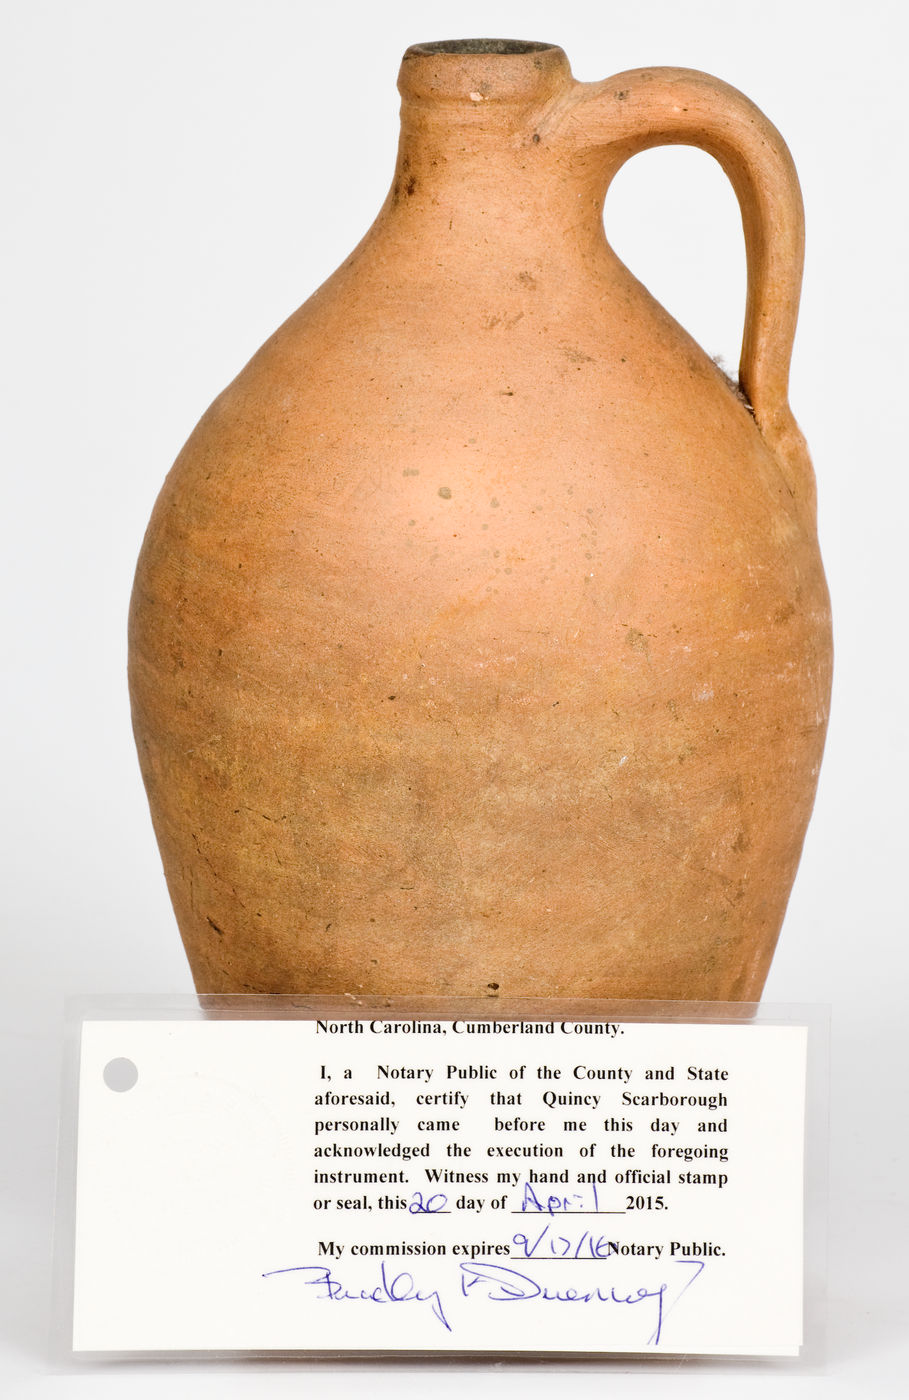 North Carolina, Cumberland County.
I, a Notary Public of the County and State
aforesaid, certify that Quincy Scarborough
personally came before me this day and
acknowledged the execution of the foregoing
instrument. Witness my hand and official stamp
or seal, this 20 day of April 2015.
My commission expires 9/17/16 Notary Public.